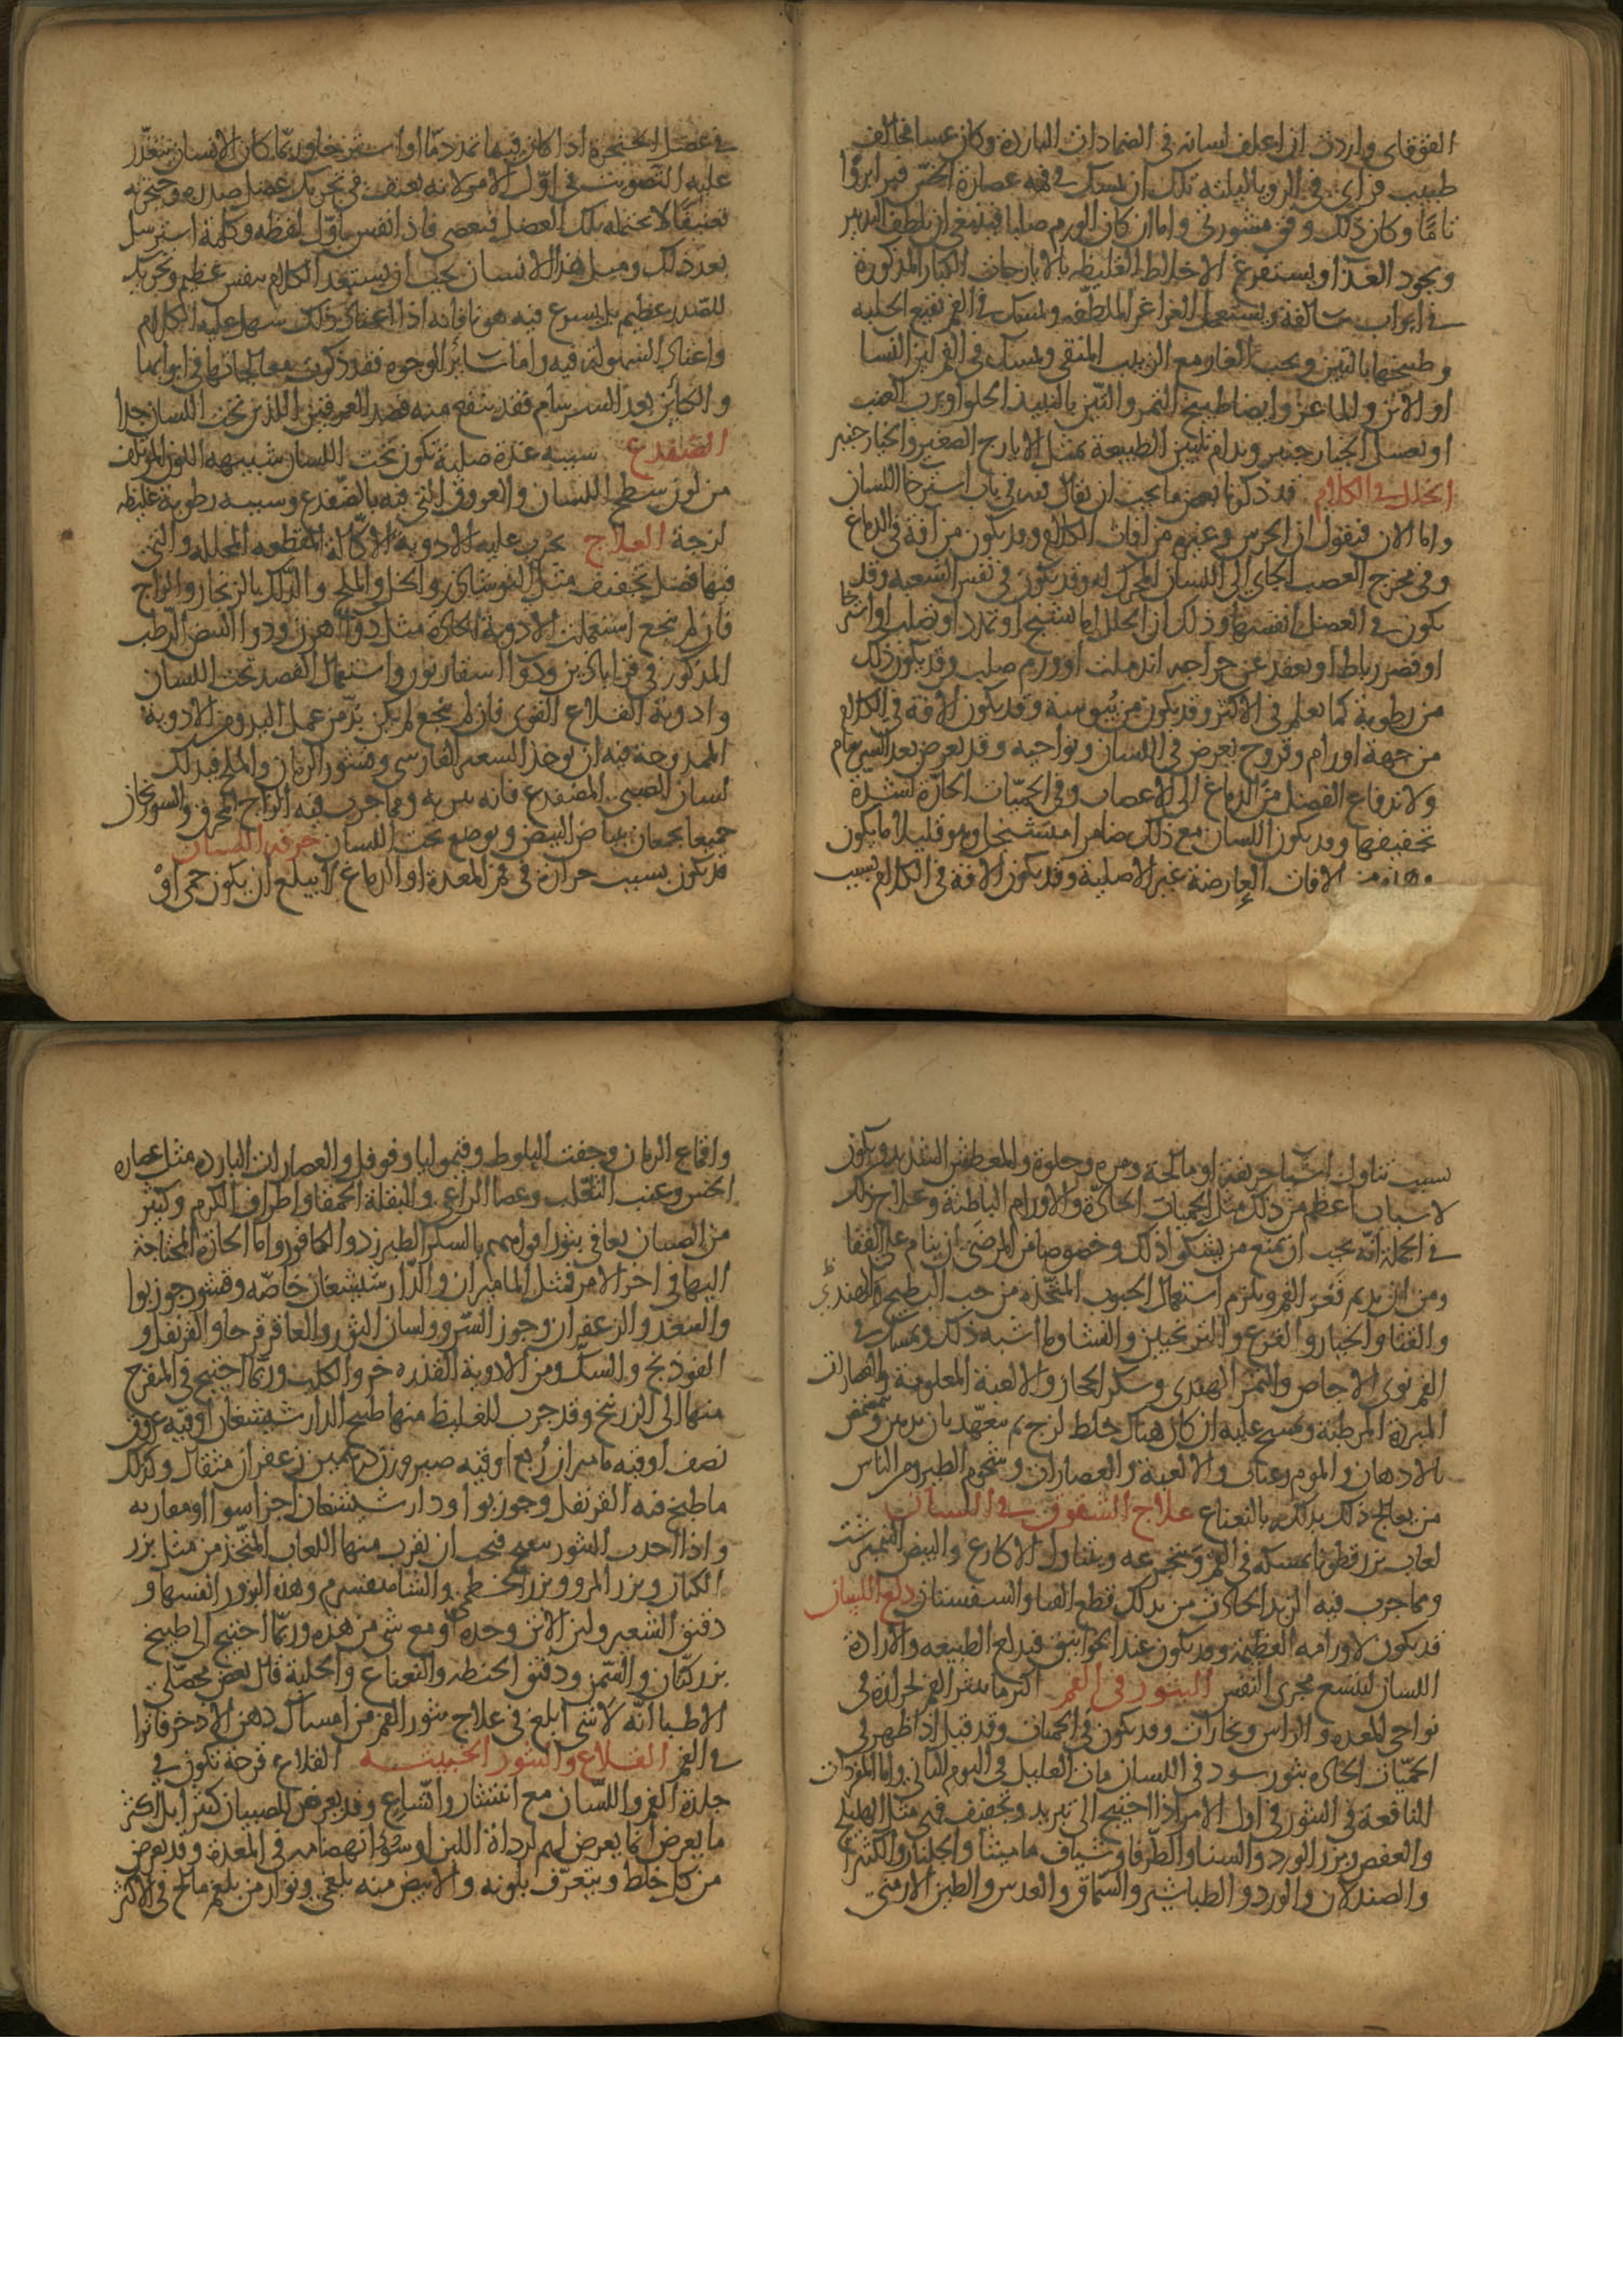 القوقاى واردت ان اعلف لسانه فى الضمادات الباردة وكان عسا مخالف
طبيب فراى فى الرويا ليلته تلك ان يمسك فى فيه عصارة الخس فبرا بروا
تاما وكان ذلك وفق مشورتى واما ان كان الورم صلبا فينبغى ان يلطف التدبير
ويجود الغذا ويستفرغ الاخلاط الغليظه بالايارجات الكبار المذكورة
فى ابواب سالفة ويستعمل الغراغر الملطفه ويمسك فى الفم نقيع الحلبه
وطبيخها بالتين وحب الغار مع الزبيب المنقى ويمسك فى الفم لبن النسا
او الاتن والماعز وايضا طبيخ التمر والتين بالنبيذ الحلو او برب العنب
او بعسل الخيار جنبر ويدام تليين الطبيعة بمثل الايارج الصغير والخيار جنبر
الخلل فى الكلام قد ذكرنا بعض ما يجب ان يقال فيه فى باب استرخا اللسان
واما الان فنقول ان الخرس وغيره من افات الكلام قد يكون من آفة فى الدماغ
وفى مخرج العصب الجاى الى اللسان المحرك له وقد يكون فى نفس الشعبه وقد
يكون فى العضل انفسها وذلك ان الخلل اما بتشنج او تمدد او تصلب او استرخا
او قصر رباط او تعقد عن جراحه اندملت او ورم صلب وقد يكون ذلك
من رطوبة كما يعلم فى الاكثر وقد يكون من يبوسة وقد يكون الافة فى الكلام
من جهة اورام وقروح يعرض فى اللسان ونواحيه وقد يعرض بعد السرسام
ولاندفاع الفضل من الدماغ الى الاعصاب وفى الحميات الحارة لشدة
تجفيفها وقد يكون اللسان مع ذلك ضامرا متشنجا وهو قليلا ما يكون
وهذه من الافات العارضة غير الاصلية وقد يكون الافة فى الكلام بسبب
فى عضل الحنجرة اذا كان فيها تمدد ما او استرخا وربما كان الانسان يتعذر
عليه التصويت فى اول الامر الا انه يعنف فى تحريك عضل صدره وحنجرته
تعنيفا لا تحتمله تلك العضل فتعصى فاذا انفس باول لفظه وكلمة استرسل
بعد ذلك ومثل هذا الانسان يجب ان يستعد للكلام بنفس عظيم وتحريك
للصدر عظيم بل يسرع فيه هونا فانه اذا اعتاد ذلك سهل عليه الكلام
واعتاد السهولة فيه واما سائر الوجوه فقد ذكرت معالجاتها فى ابوابها
والكائن بعد السرسام فقد ينتفع منه فصد العرقين اللذين تحت اللسان جدا
الضفدع سببه غدة صلبة تكون تحت اللسان شبيهه اللون المؤتلف
من لون سطح اللسان والعروق التى فيه بالضفدع وسببه رطوبة غليظه
لزجة العلاج يجرب عليه الادوية الاكالة المقطعه المحلله والتى
فيها فضل تجفيف مثل النوشادر والخل والملح والدلك بالزنجار والزاج
فان لم ينجع استعملت الادوية الحادة مثل دوا هرز ودوا البيض الرطب
المذكور فى قراباذين ودوا اسفارنور واستعمال الفصد تحت اللسان
وادوية القلاع القوى فان لم ينجع لم يكن بد من عمل اليد ومن الادوية
الممدوحة فيه ان يوخذ السعتر الفارسى وقشور الرمان والملح فيدلك
لسان الصبى المضفدع فانه يبريه ومما جرب فيه الزاج المحرق والسورنجان
جميعا يجمعان ببياض البيض ويوضع تحت اللسان حرقه اللسان
قد يكون بسبب حرارة فى فم المعدة او الدماغ لا يبلغ ان يكون حمى او
بسبب تناول اشيا حريفة او مالحة ومره وحلوة والمعطش الشديد ويكون
لاسباب اعظم من ذلك مثل الحميات الحادة والاورام الباطنة وعلاج ذلك
فى الجملة انه يجب ان يمنع من يشكوا ذلك وخصوصا من المرضى ان ينام على القفا
ومن ان يديم فغر الفم ويلزم استعمال الحبوب المتخذه من حب البطيخ والهندى
والقثا والخيار والقرع والترنجبين والنشا وما اشبه ذلك ويمسك فى
الفم نوى الاجاص والتمر الهندى وسكر الحجاز والالعبة المعلومة والعصارات
المبردة المرطبة ويمسح عليه ان كان هناك خلط لزج ثم يتعهد بان يدهن ويتمضمض
بالادهان والموم روغان والالعبة والعصارات وشحوم الطير ومن الناس
من يعالج ذلك بدلكه بالنعناع علاج الشقوق فى اللسان
لعاب بزر قطونا يمسكه فى الفم ويتجرعه ويتناول الاكارع والبيض النيمبرشت
ومما جرب فيه الزبد الحادث من يدلك قطع القثا والسفستان دلع اللسان
قد يكون لاورامه العظيمة وقد يكون عند الخوانيق فيدلع الطبيعه والارادة
اللسان ليتسع مجرى النفس البثور فى الفم اكثر ما يتبثر الفم لحرارة فى
نواحى المعده والراس وبخارات وقد يكون فى الحميات وقد قيل اذا ظهر فى
الحميات الحاده بثور سود فى اللسان مات العليل فى اليوم الثانى واما المفردات
النافعة فى البثور فى اول الامر اذا احتيج الى تبريد وتجفيف فهى مثل الهليلج
والعفص وبزر الورد والنشا والطرفا وشياف ماميثا والجلنار والكثيرا
والصندلان والورد والطباشير والسماق والعدس والطين الارمنى
واقماع الرمان وجفت البلوط وقيموليا وفوفل والعصارات البارده مثل عصاره
الخس وعنب الثعلب وعصا الراعى والبقلة الحمقا واطراف الكرم وكثير
من الصبيان يعافى بثور افواههم بالسكر الطبرزد والكافور واما الحارة المحتاجة
اليها فى اخر الامر فمثل الماميران والدارشيشعان خاصه وقشور جوزبوا
والسعد والزعفران وجوز السرو ولسان الثور والعاقرقرحا والقرنفل و
الفوذنج والسك ومن الادوية القذره خرو الكلب وربما احتيج فى المقرح
منها الى الزرنيخ وقد جرب للغليظ منها طبيخ الدارشيشعان اوقيه عروق
نصف اوقيه ماميران ربع اوقيه صبر وزن درهمين زعفران مثقال وكذلك
ما طبخ فيه القرنفل وجوزبوا ودارشيشعان اجزا سوا او مقاربه
واذا احدث البثور سعى فيجب ان يقرب منها اللعاب المتخذ من مثل بزر
الكتان وبزر المرو وبزر الخطمى والشاهسفرم وهذه البزور انفسها و
دقيق الشعير ولبن الاتن وحده او مع شى من هذه وربما احتيج الى طبيخ
بزر كتان والتمر ودقيق الحنطه والنعناع والحلبة قال بعض محصلى
الاطبا انه لا شى ابلغ فى علاج بثور الفم من امساك دهن الاذخر فاترا
فى الفم القلاع والبثور الخبيثه القلاع قرحة تكون فى
جلدة الفم واللسان مع انتشار واتساع وقد يعرض للصبيان كثيرا بل اكثر
ما يعرض انما يعرض لهم لرداة اللبن او سوء انهضامه فى المعدة وقد يعرض
من كل خلط ويتعرف بلونه والابيض منه بلغمى وتولد من بلغم مالح فى الاكثر